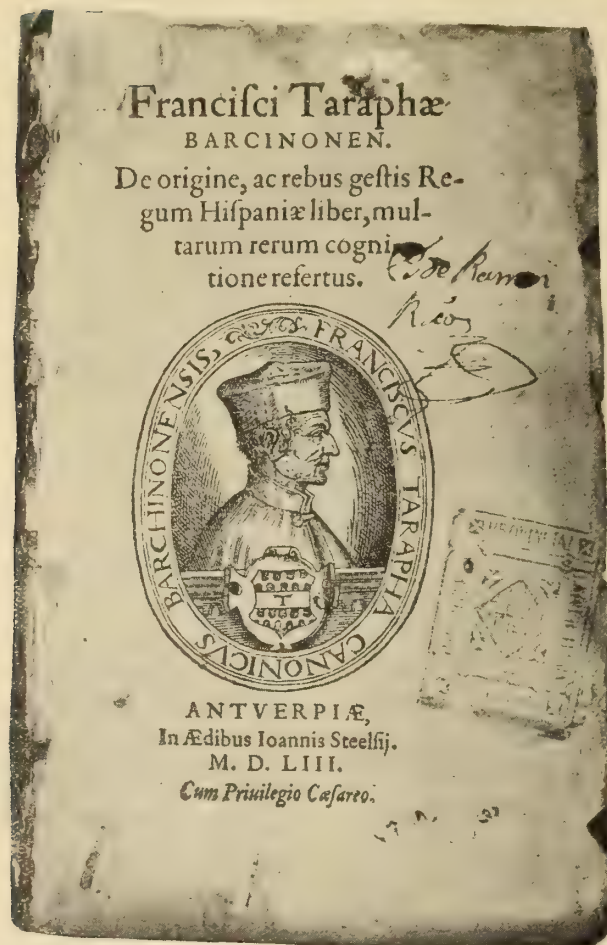 Franciſci Taraphæ
BARCINONEN.
De origine, ac rebus geſtis Re-
gum Hiſpaniæ liber, mul-
tarum rerum cogni-
tione refertus.
de Ramon
FRANCISCVS TARAPHA CANONICVS BARCHINONENSIS,
T
ANTVERPIÆ,
In Ædibus Ioannis Steelſij.
M. D. LIII.
Cum Priuilegio Cæſareo.